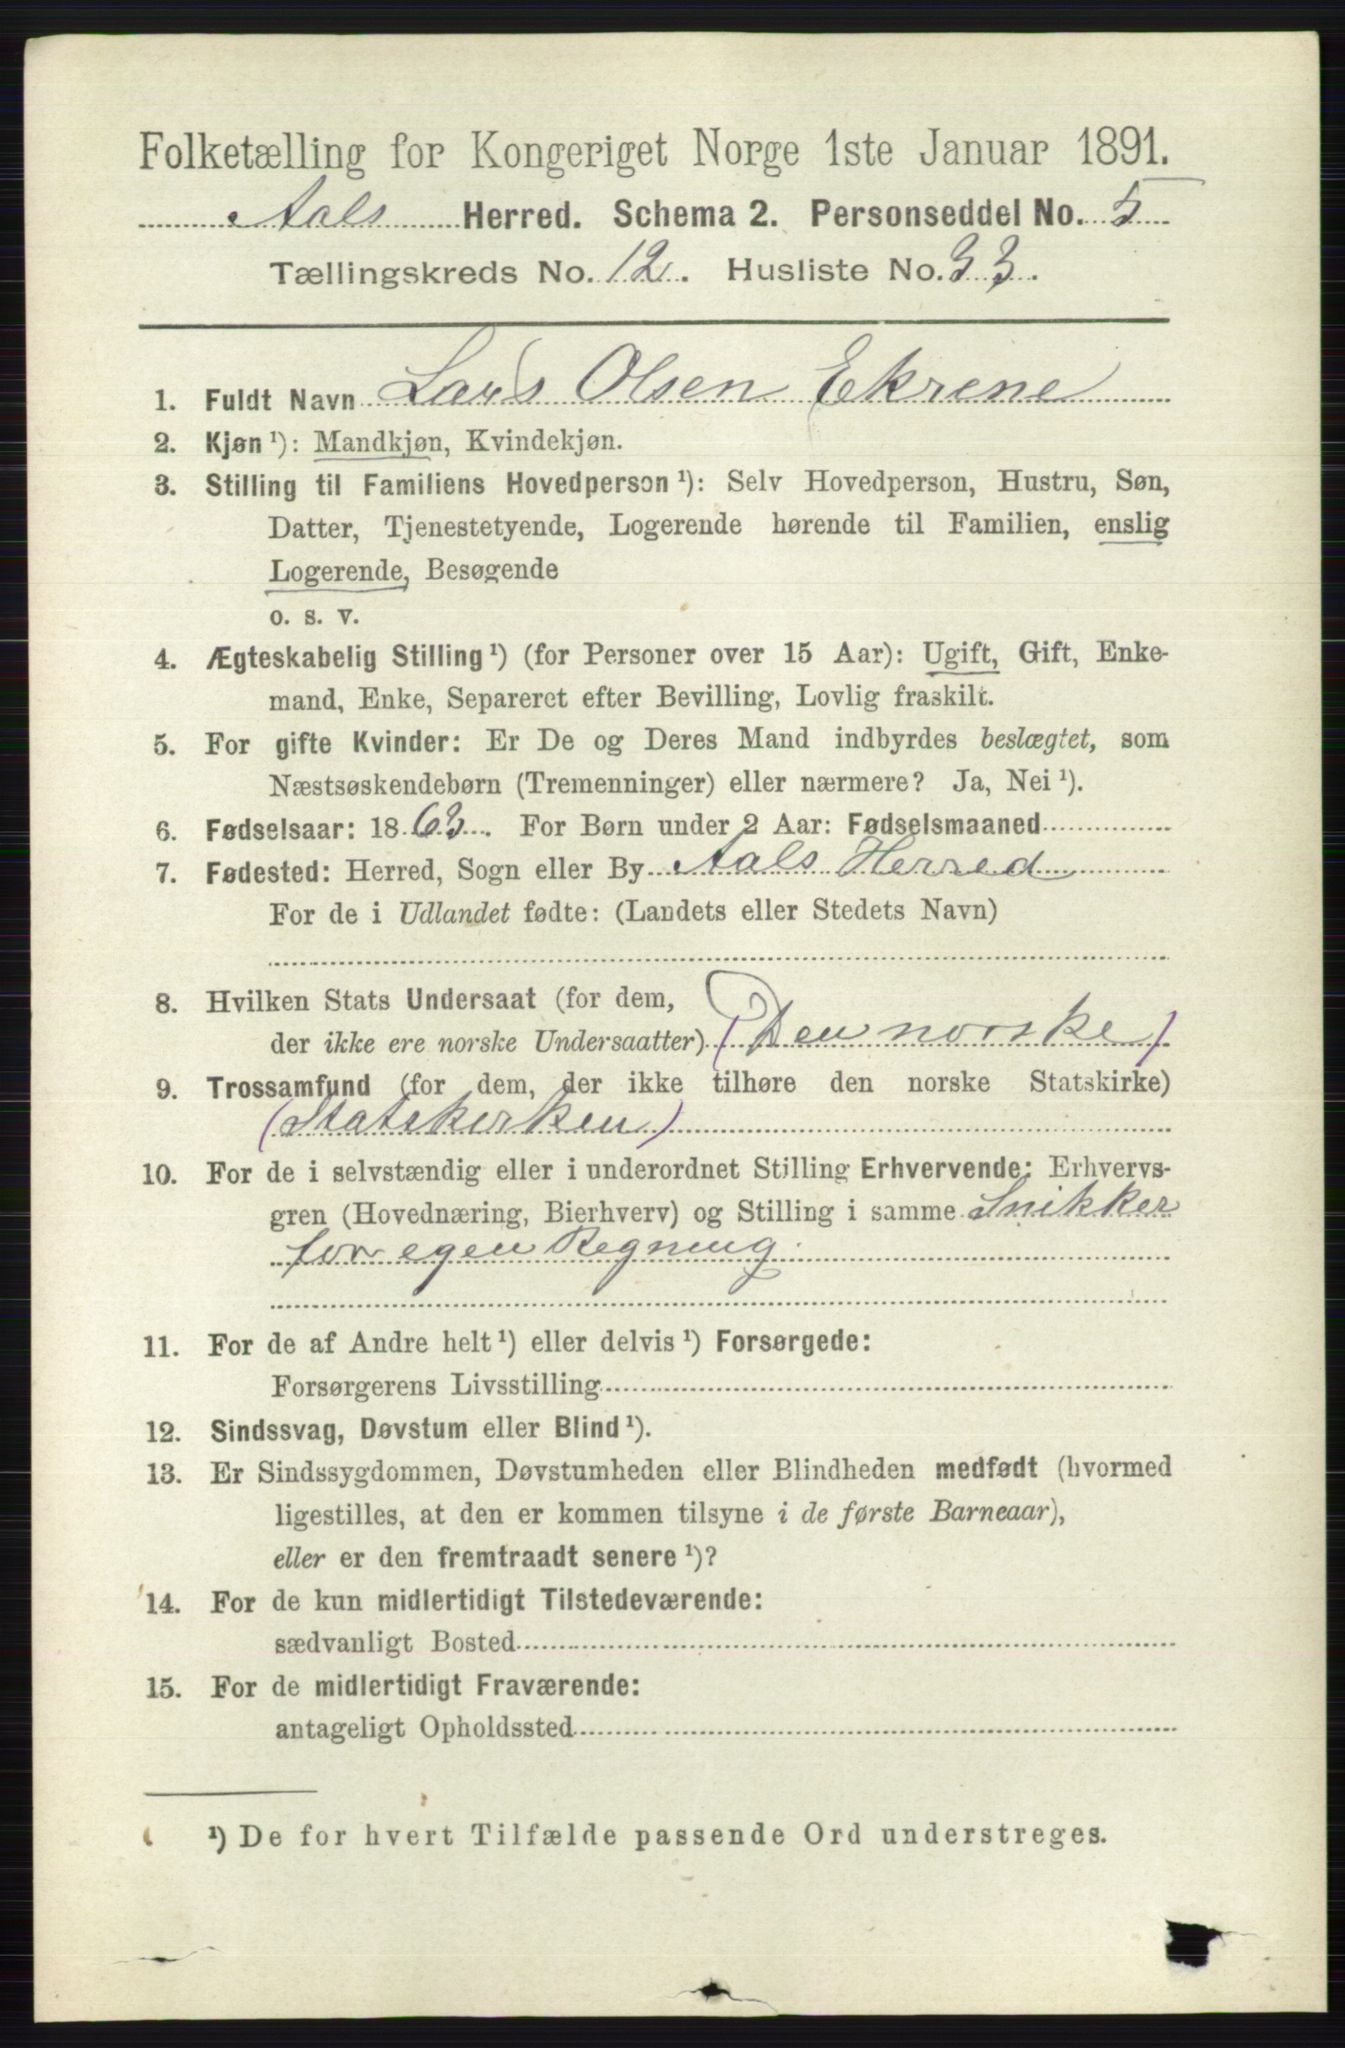 Folketælling for Kongeriget Norge 1ste Januar 1891.
Aals Herred. Schema 2. Personseddel No. 5
Tællingskreds No. 12. Husliste No. 33.
1. Fuldt Navn Lars Olsen Ekrene
2. Kjøn ¹): Mandkjøn, Kvindekjøn.
3. Stilling til Familiens Hovedperson ¹): Selv Hovedperson, Hustru, Søn,
Datter, Tjenestetyende, Logerende hørende til Familien, enslig
Logerende, Besøgende
o. s. v.
4. Ægteskabelig Stilling ¹) (for Personer over 15 Aar): Ugift, Gift, Enke-
mand, Enke, Separeret efter Bevilling, Lovlig fraskilt.
5. For gifte Kvinder: Er De og Deres Mand indbyrdes beslægtet, som
Næstsøskendebørn (Tremenninger) eller nærmere? Ja, Nei ¹).
6. Fødselsaar: 1863. For Børn under 2 Aar: Fødselsmaaned
7. Fødested: Herred, Sogn eller By Aals Herred
For de i Udlandet fødte: (Landets eller Stedets Navn)
8. Hvilken Stats Undersaat (for dem,
der ikke ere norske Undersaatter) (Den norske)
9. Trossamfund (for dem, der ikke tilhøre den norske Statskirke)
(Statskerken)
10. For de i selvstændig eller i underordnet Stilling Erhvervende: Erhvervs-
gren (Hovednæring, Bierhverv) og Stilling i samme Snikker
for egen Regning.
11. For de af Andre helt ¹) eller delvis ¹) Forsørgede:
Forsørgerens Livsstilling
12. Sindssvag, Døvstum eller Blind ¹).
13. Er Sindssygdommen, Døvstumheden eller Blindheden medfødt (hvormed
ligestilles, at den er kommen tilsyne i de første Barneaar),
eller er den fremtraadt senere ¹)?
14. For de kun midlertidigt Tilstedeværende:
sædvanligt Bosted
15. For de midlertidigt Fraværende:
antageligt Opholdssted
¹) De for hvert Tilfælde passende Ord understreges.